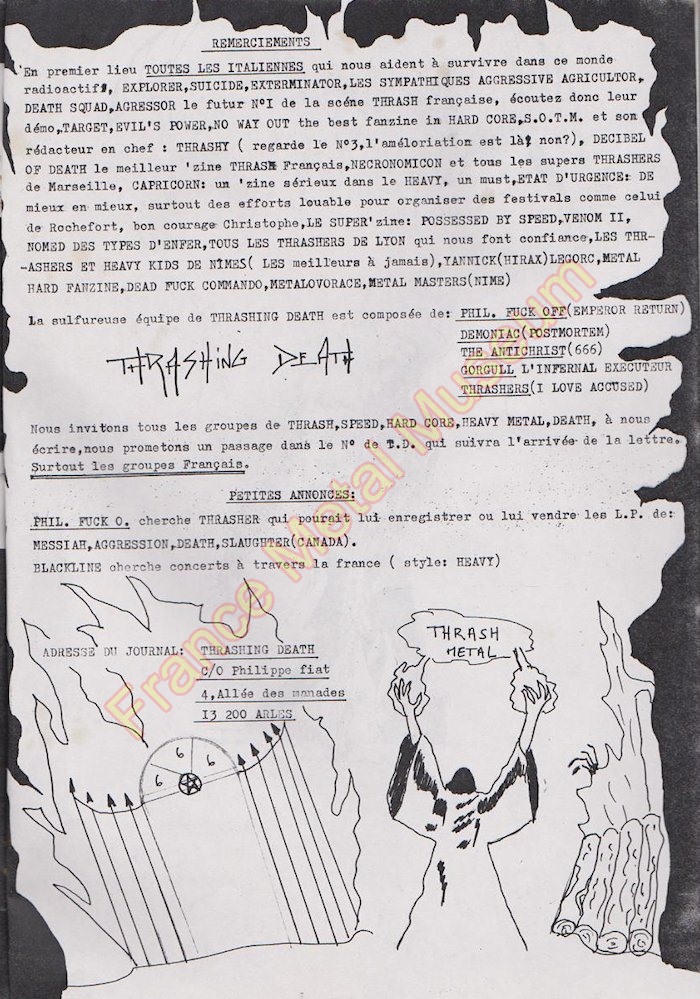 REMERCIEMENTS
En premier lieu TOUTES LES ITALIENNES qui nous aident à survivre dans ce monde
radioactif, EXPLORER,SUICIDE,EXTERMINATOR,LES SYMPATHIQUES AGGRESSIVE AGRICULTOR,
DEATH SQUAD,AGRESSOR le futur N°I de la scéne THRASH française, écoutez donc leur
démo,TARGET,EVIL'S POWER,NO WAY OUT the best fanzine in HARD CORE,S.O.T.M. et son
rédacteur en chef : THRASHY ( regarde le N°3,l'améloriation est là, non?), DECIBEL
OF DEATH le meilleur 'zine THRASH Français,NECRONOMICON et tous les supers THRASHERS
de Marseille, CAPRICORN: un 'zine sérieux dans le HEAVY, un must,ETAT D'URGENCE: DE
mieux en mieux, surtout des efforts louable pour organiser des festivals comme celui
de Rochefort, bon courage Christophe,LE SUPER'zine: POSSESSED BY SPEED,VENOM II,
NOMED DES TYPES D'ENFER,TOUS LES THRASHERS DE LYON qui nous font confiance,LES THR-
-ASHERS ET HEAVY KIDS DE NîMES( LES meilleurs à jamais),YANNICK(HIRAX)LEGORC,METAL
HARD FANZINE,DEAD FUCK COMMANDO,METALOVORACE,METAL MASTERS(NIME)
La sulfureuse équipe de THRASHING DEATH est composée de: PHIL. FUCK OFF(EMPEROR RETURN)
DEMONIAC(POSTMORTEM)
THE ANTICHRIST(666)
GORGULL L'INFERNAL EXECUTEUR
THRASHERS(I LOVE ACCUSED)
THRASHING DEATH
Nous invitons tous les groupes de THRASH,SPEED,HARD CORE,HEAVY METAL,DEATH, à nous
écrire,nous prometons un passage dans le N° de T.D. qui suivra l'arrivée de la lettre.
Surtout les groupes Français.
PETITES ANNONCES:
PHIL. FUCK O. cherche THRASHER qui pourait lui enregistrer ou lui vendre les L.P. de:
MESSIAH,AGGRESSION,DEATH,SLAUGHTER(CANADA).
BLACKLINE cherche concerts à travers la france ( style: HEAVY)
ADRESSE DU JOURNAL: THRASHING DEATH
C/O Philippe fiat
4,Allée des manades
I3 200 ARLES
THRASH
METAL
6 6 6
France Metal Museum